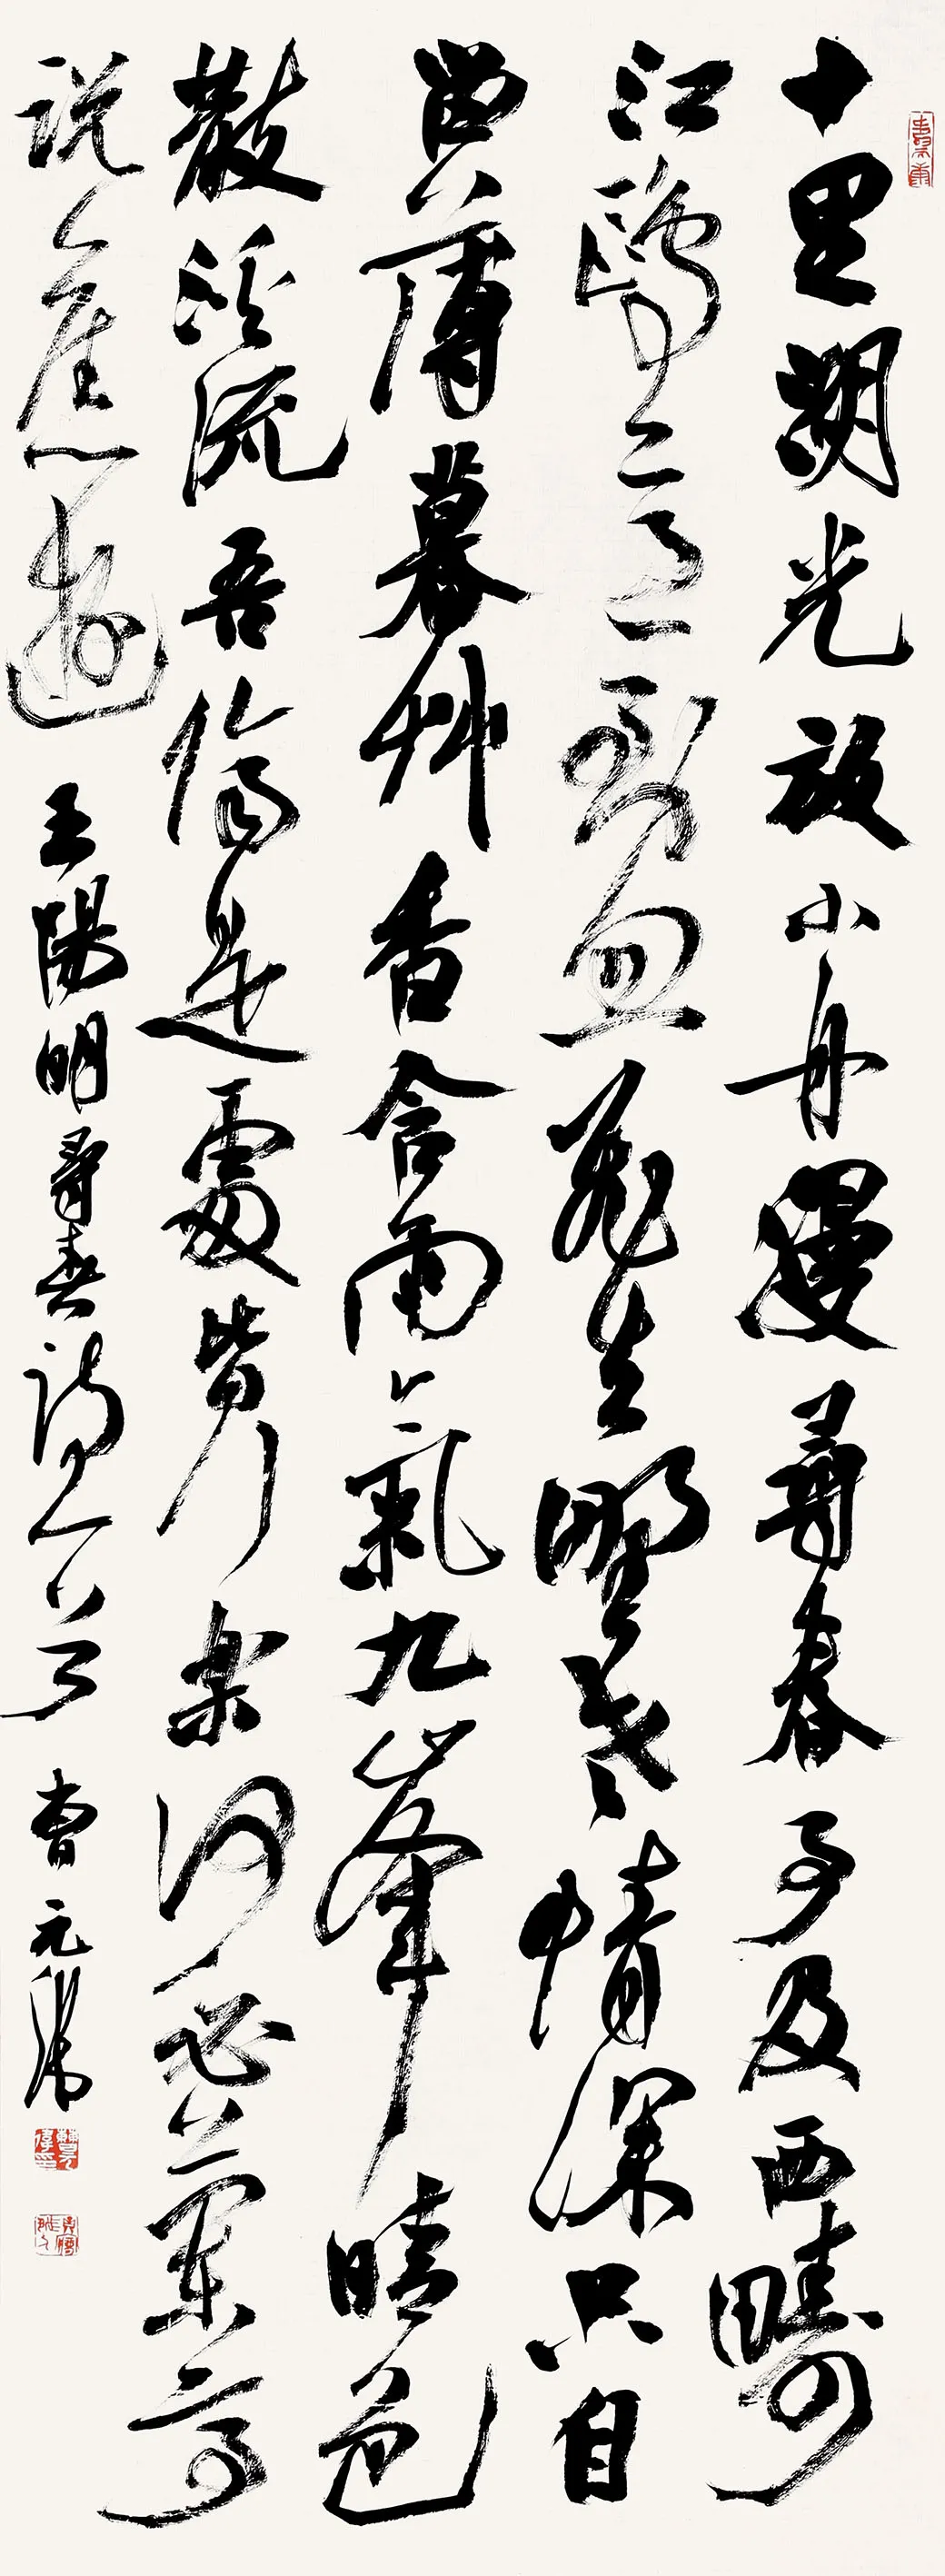 十里湖光放小舟漫尋春事及西疇
江鷗意到忽飛去野老情深只自
留薄暮艸香含雨氣九峯晴色
散溪流吾儕是處皆行楽何必蘭亭
說舊遊 王陽明尋春詩一首 曹元偉